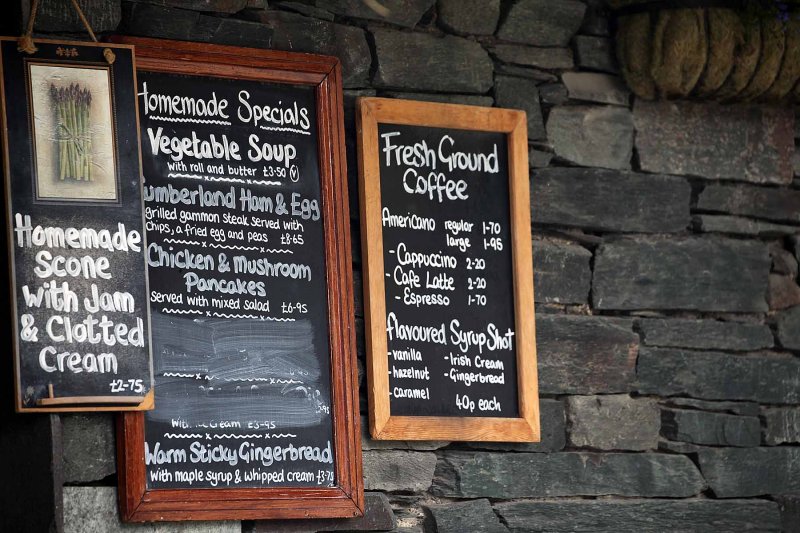 Homemade
Scone
with Jam
& Clotted
Cream
£2-75
Homemade Specials
Vegetable Soup
with roll and butter £3-50 V
Cumberland Ham & Egg
grilled gammon steak served with
chips, a fried egg and peas £8-65
Chicken & Mushroom
Pancakes
served with mixed salad £6-95
With Ice Cream £3-95
Warm Sticky Gingerbread
with maple syrup & whipped cream
Fresh Ground
Coffee
Americano regular 1-70
large 1-95
- Cappuccino 2-20
- Cafe Latte 2-20
- Espresso 1-70
Flavoured Syrup Shot
- vanilla - Irish Cream
- hazelnut - Gingerbread
- caramel
40p each